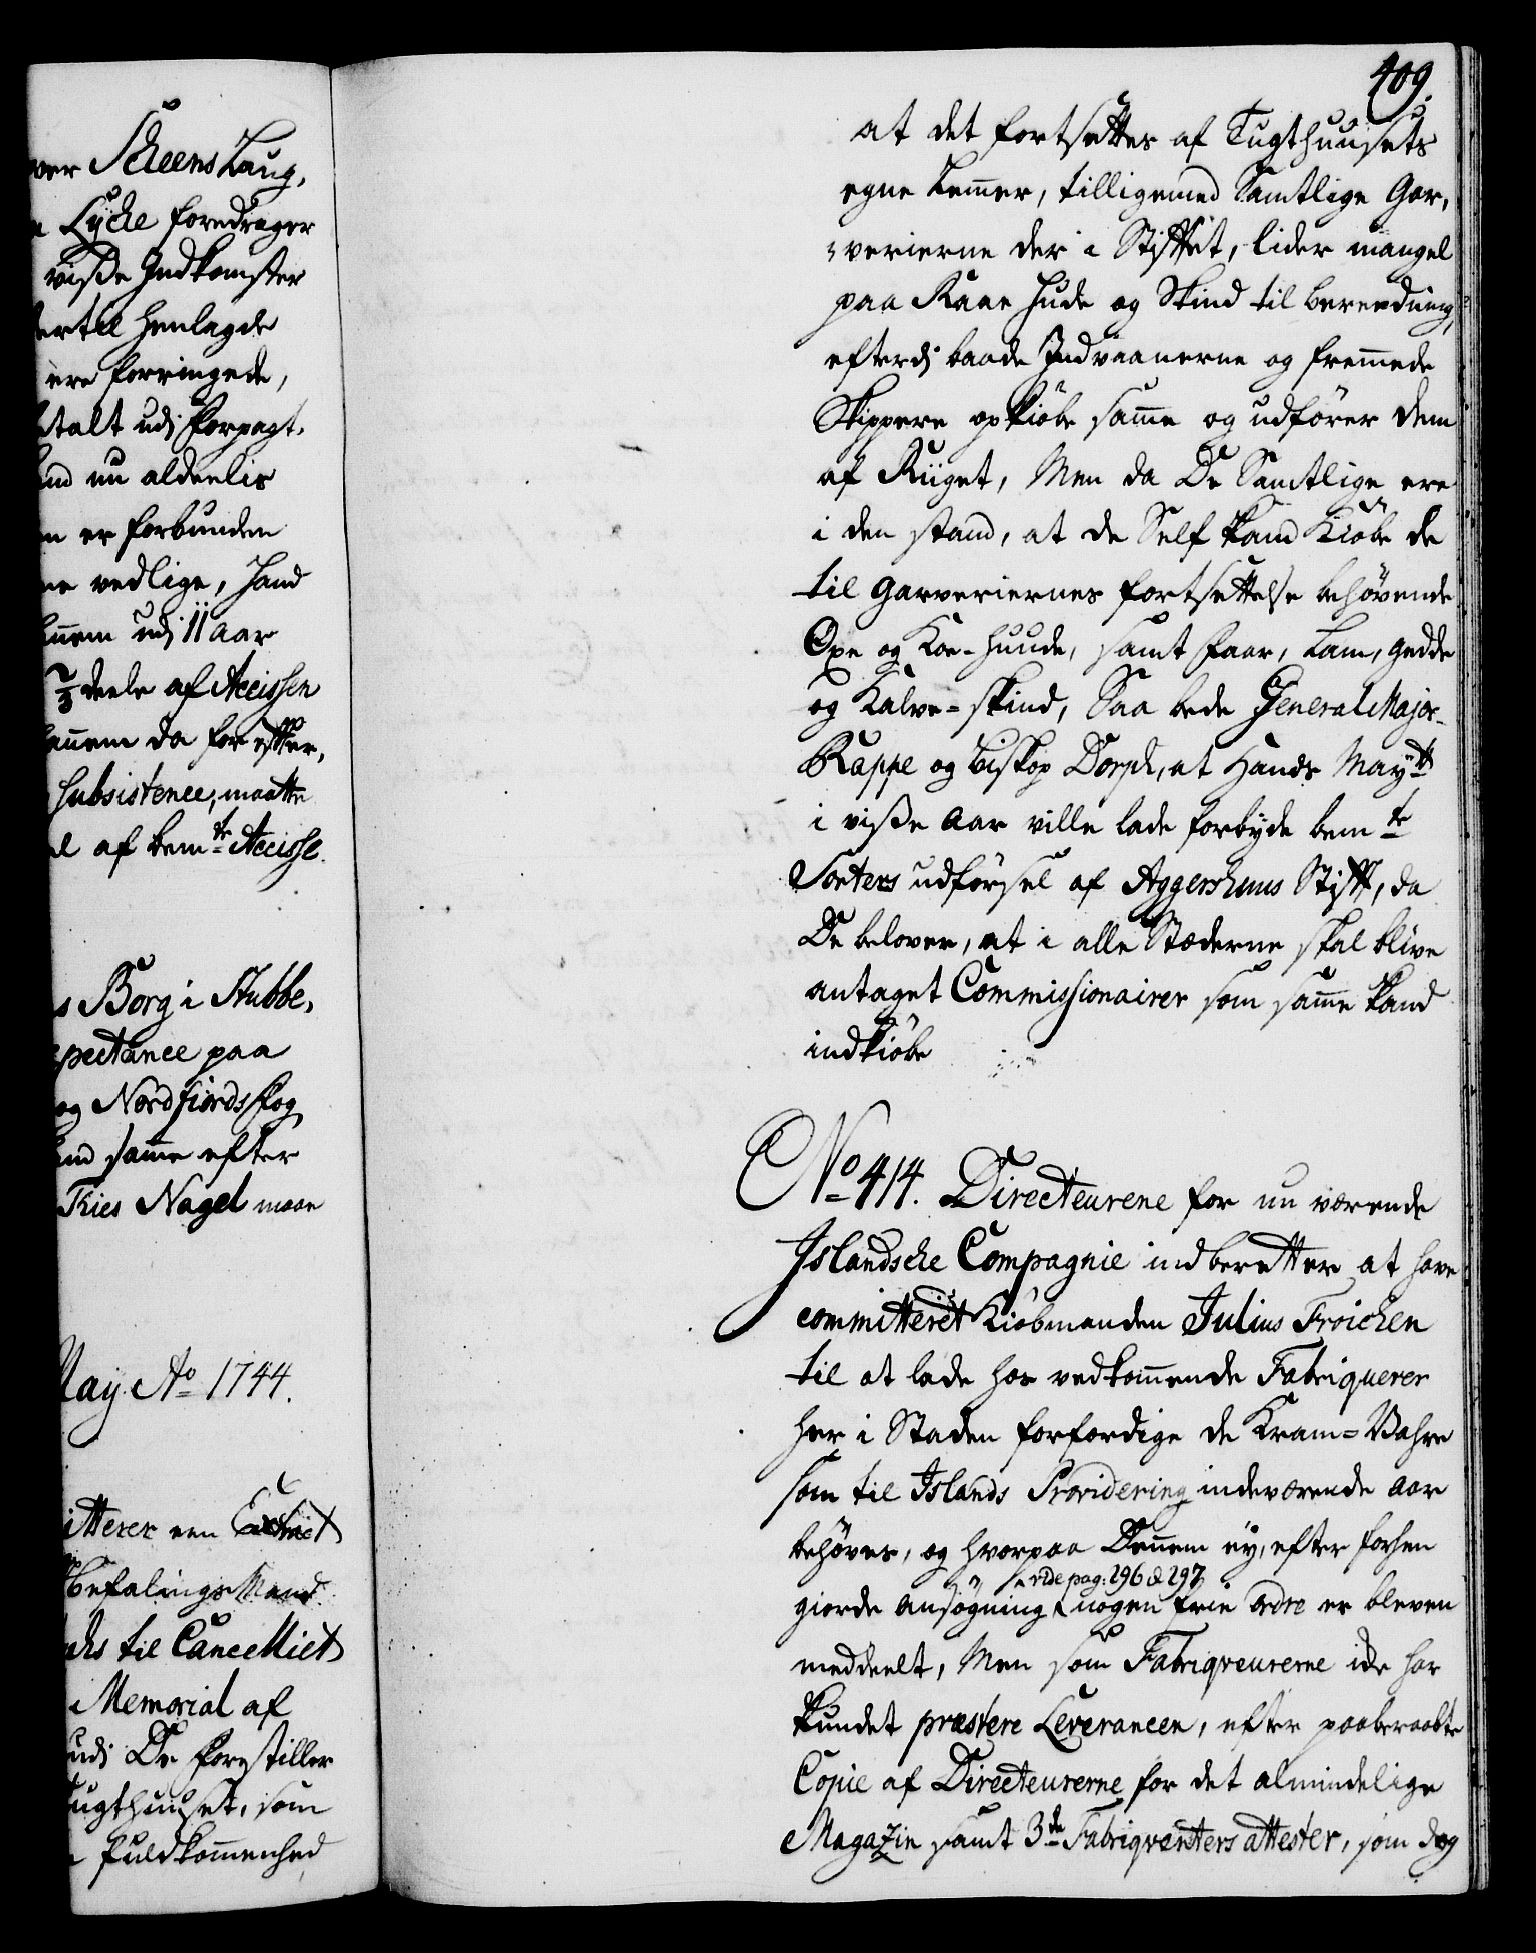 ver Scheens Laug,
Lÿche foredrager
viße Indkomster
ertil henlagde
ere forringede,
talt udj Forpagt,
nu aldeelis
er forbunden
vedlige, hand
udj 11 aar
2/3 deele af Accissen
da for
Subsistence, maatte
af bemte Accisse.
Borg i Stubbe,
pectance paa
og Nordfiords Fog
samme efter
Thies Nagel maae
May Ao 1744.
itterer een Extract
Befalings Mand
til Cancelliet
Memorial af
udj De forestiller
ugthuuset, som
Fuldkommenhed
409.
at det fortsættes af Tugthuusets
egne Lemmer, tilligemed Samtlige Gar,
,verierne der i Stiftet, lider mangel
paa Raae Hude og Skind til bereedning,
efterdj baade Indvaanerne og fremmede
Skippere opkiöbe samme og udförer dem
af Riiget, Men da De Samtlige ere
i den stand, at de Self kand Kiöbe de
til Garveriernes fortsettelse behövende
Oxe og Koe-huude, samt Faar, Lam, gedde
og Kalve-skind, Saa bede General Major
Rappe og biskop Dorph, at Hands Maytt
i viße aar ville lade forbyde bemte
Sorters udförsel af Aggershuus Stift, da
De belover, at i alle Stæderne skal blive
antaget Commissionairer som samme kand
indkiöbe
No 414. Directeurene for nu værende
Islandsche Compagnie indberetter at have
committeret Kiöbmanden Julius Froichen
til at lade hos vedkommende Fabriquerer
her i Staden forfærdige de Kram-Vahre
som til Islands Providering indeværende aar
behöves, og hvorpaa Dennem ey, efter forhen
vide pag: 296 & 297
giorde ansögning nogen frie ordre er bleven
meddeelt, Men som Fabriqveurerne icke har
kundet præstere Leverancen, efter paaberaabte
Copie af Directeurerne for det almindelige
Magazin samt 3de Fabriqvanters attester, som dog